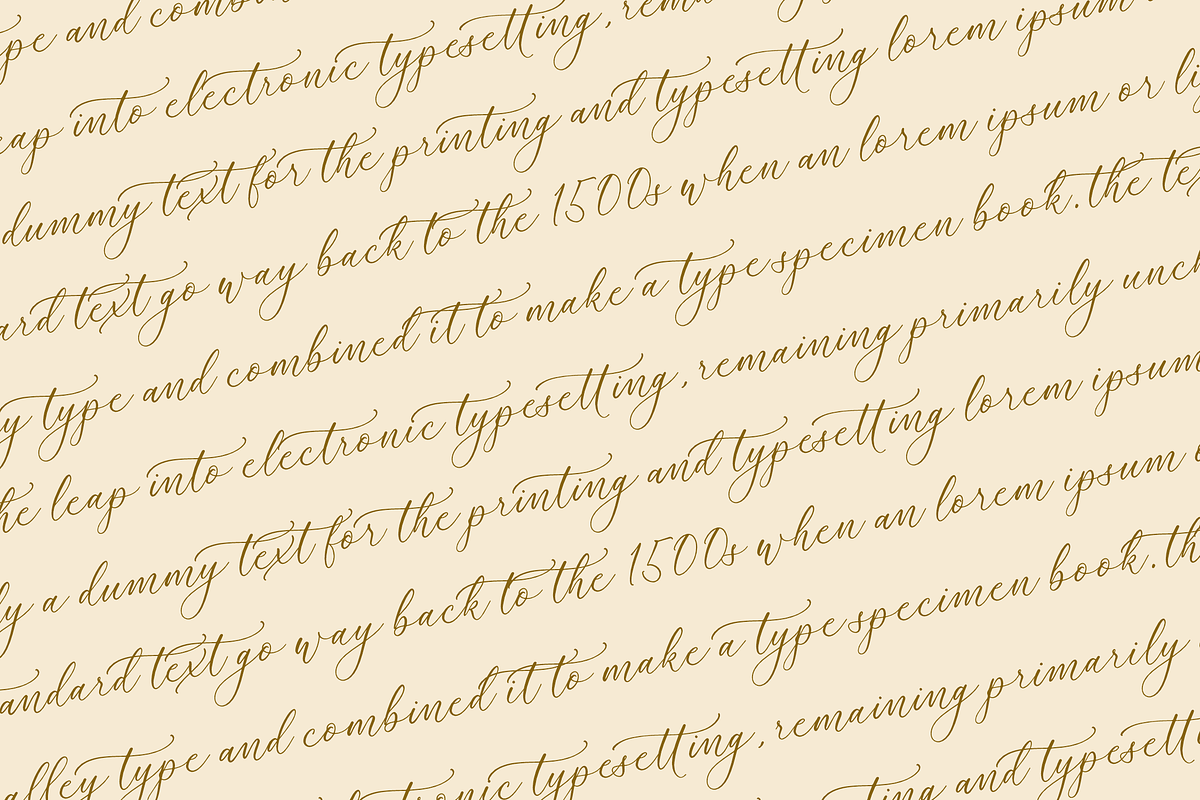 type and
leap into electronic typesetting,
dummy text for the printing and typesetting lorem ipsum
text go way back to the 1500s when an lorem ipsum or
type and combined it to make a type specimen book. the
the leap into electronic typesetting, remaining primarily
a dummy text for the printing and typesetting lorem ipsum
standard text go way back to the 1500s when an lorem ipsum
alley type and combined it to make a type specimen book.
typesetting, remaining primarily
and